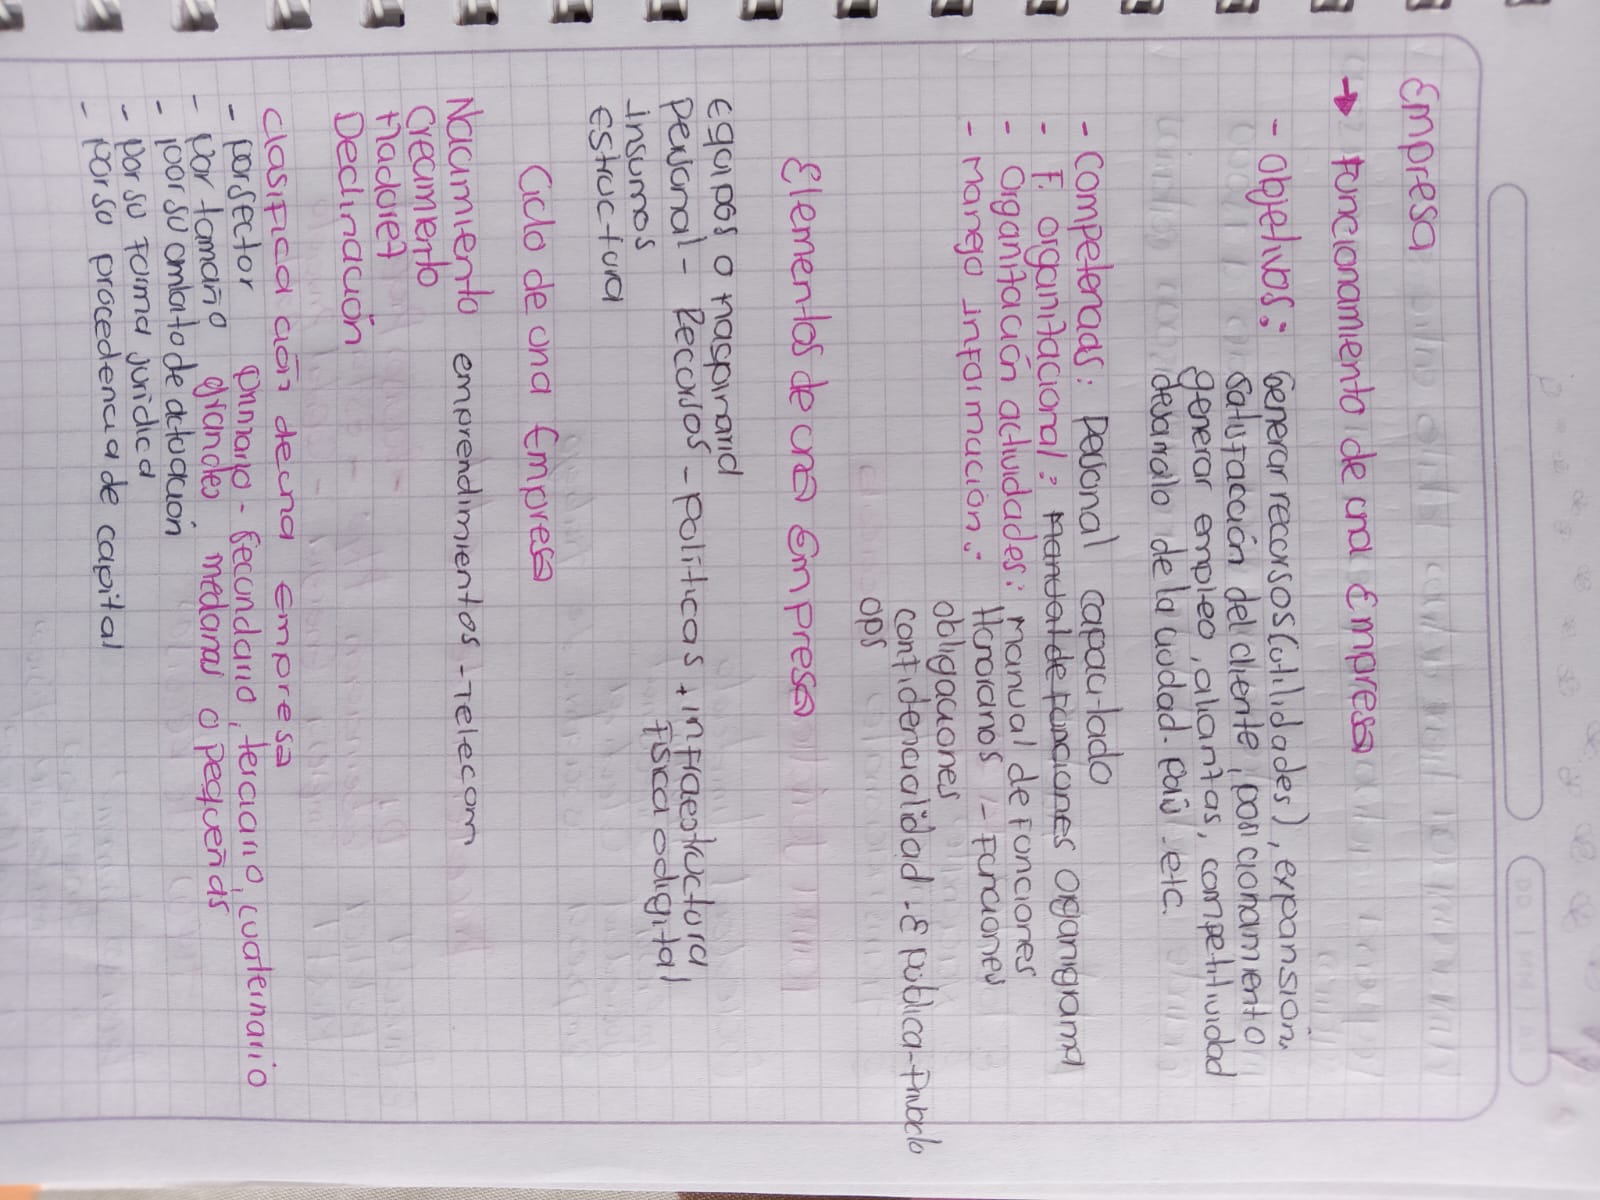 Empresa
→ Funcionamiento de una Empresa
- Objetivos: Generar recursos (utilidades), expansión,
satisfacción del cliente, posicionamiento
generar empleo, alianzas, competitividad
desarrollo de la ciudad. País. etc.
- Competencias: Personal capacitado
- F. organizacional: Manual de funciones Organigrama
- Organización actividades: Manual de Funciones
- Manejo información: Honorarios - Funciones
obligaciones
confidencialidad - E publica - Privada
OPS
Elementos de una Empresa
Equipos o maquinaria
Personal - Recursos - Políticas + infraestructura
física o digital
Insumos
Estructura
Ciclo de una Empresa
Nacimiento emprendimientos - Telecom
Crecimiento
Madurez
Declinación
Clasificación de una Empresa
- por sector Primario - Secundario, terciario, cuaternario
- por tamaño grandes medianas o pequeñas
- por su ambito de actuación
- por su Forma jurídica
- por su procedencia de capital